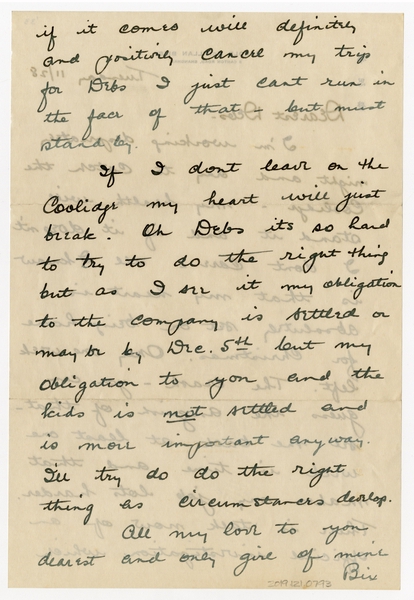 if it comes will definitely
and positively cancel my trip
for Debs I just cant run in
the face of that - but must
stand by.
If I dont leave on the
Coolidge my heart will just
break. Oh Debs its so hard
to try to do the right thing
but as I see it my obligation
to the company is settled or
may be by Dec. 5th but my
obligation to you and the
kids is not settled and
is more important anyway.
I'll try do do the right
thing as circumstances develop.
All my love to you
dearest and only girl of mine
Bix
2019.121.0793